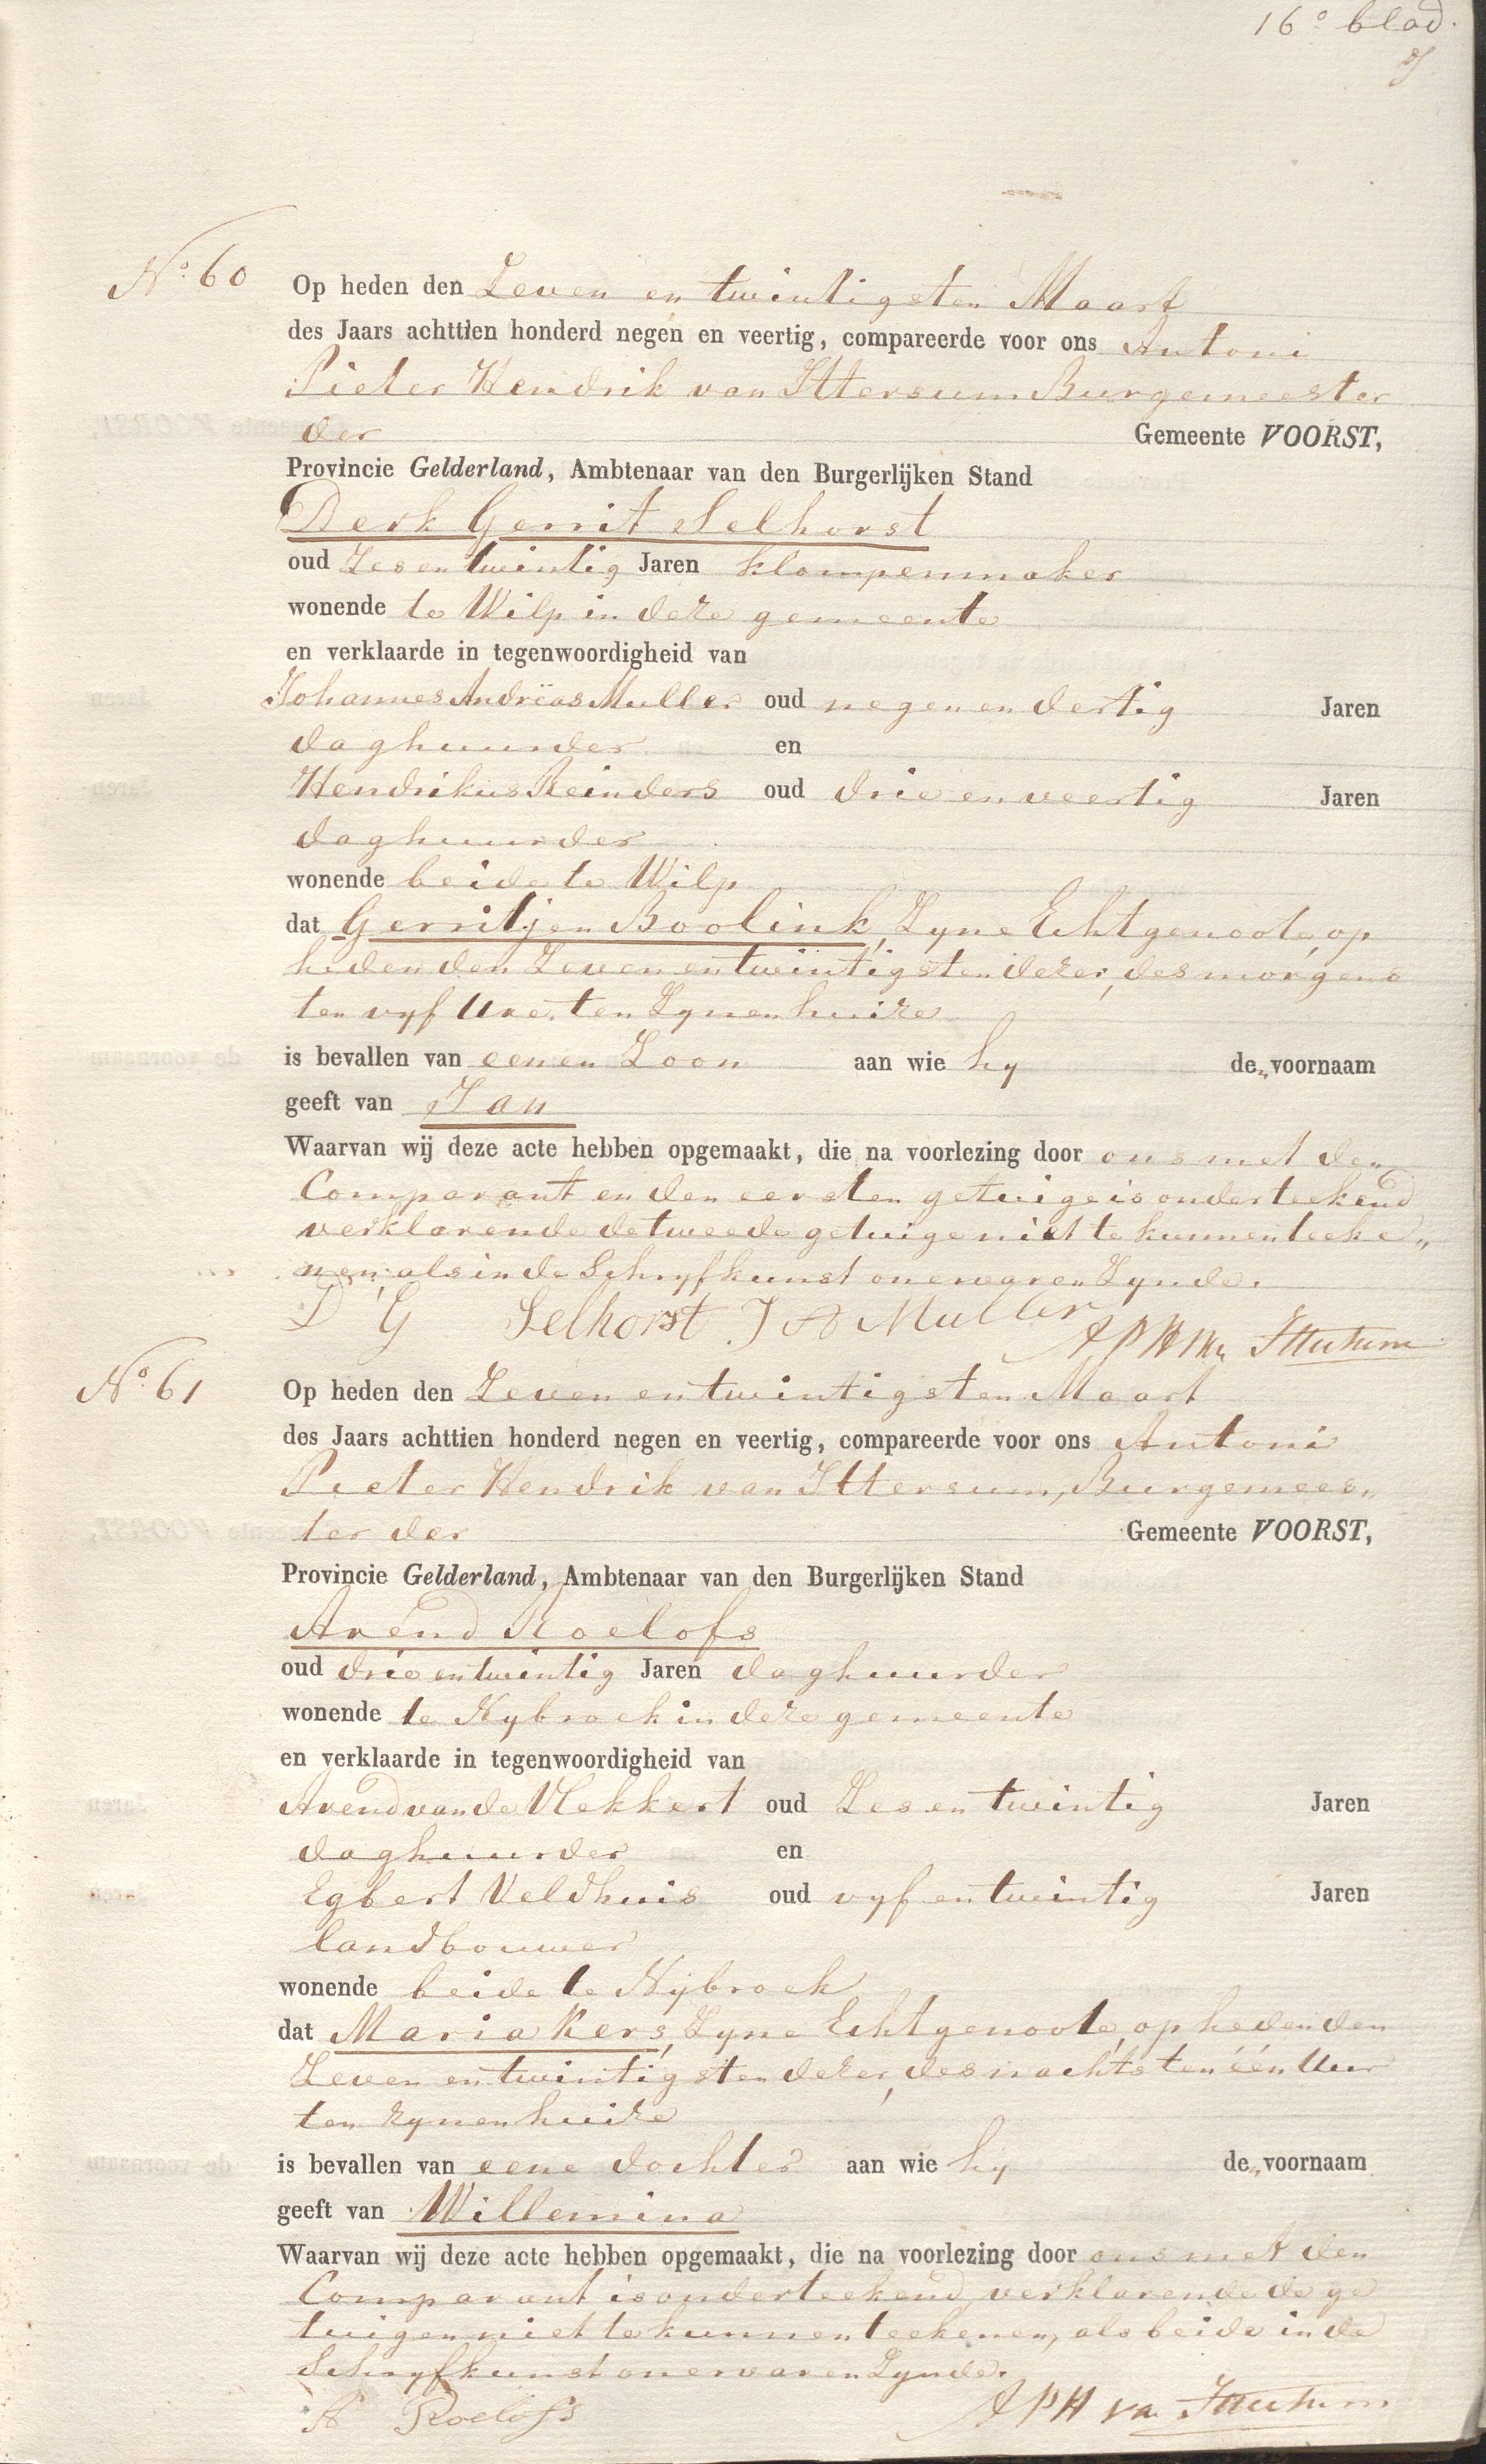 16e blad.
No. 60 Op heden den Zeven en twintigsten Maart
des Jaars achttien honderd negen en veertig, compareerde voor ons Antoni
Pieter Hendrik van Ittersum Burgemeester
der Gemeente VOORST,
Provincie Gelderland, Ambtenaar van den Burgerlijken Stand
Derk Gerrit Selhorst
oud Zes en twintig Jaren klompenmaker
wonende te Wilp in deze gemeente
en verklaarde in tegenwoordigheid van
Johannes Andrïas Muller oud negen en dertig Jaren
daghuurder en
Hendrikus Reinders oud drie en veertig Jaren
daghuurder
wonende beide te Wilp
dat Gerritjen Boolink, Zyne Echtgenoote, op
heden den Zeven en twintigsten dezer, des morgens
ten vyf Ure, ten Zynen huize
is bevallen van eenen Zoon aan wie hy de„voornaam
geeft van Jan
Waarvan wij deze acte hebben opgemaakt, die na voorlezing door ons met den
Comparant en den eersten getuige is onderteekend
verklarende de tweede getuige niet te kunnen teeke„
nen, als in de Schryfkunst onervaren Zynde.
D G Selhorst J A Muller
APH van Ittersum
No. 61 Op heden den Zeven en twintigsten Maart
des Jaars achttien honderd negen en veertig, compareerde voor ons Antoni
Pieter Hendrik van Ittersum, Burgemees„
ter der Gemeente VOORST,
Provincie Gelderland, Ambtenaar van den Burgerlijken Stand
Arend Roelofs
oud drie en twintig Jaren daghuurder
wonende te Nybroek in deze gemeente
en verklaarde in tegenwoordigheid van
Arend van de Vlekkert oud Zes en twintig Jaren
daghuurder en
Egbert Veldhuis oud vyf en twintig Jaren
landbouwer
wonende beide te Nybroek
dat Maria Kers, Zyne Echtgenoote, op heden den
Zeven en twintigsten dezer, des nachts ten één Uur
ten zynen huize
is bevallen van eene dochter aan wie hy de„voornaam
geeft van Willemina
Waarvan wij deze acte hebben opgemaakt, die na voorlezing door ons met den
Comparant is onderteekend, verklarende de ge
tuigen niet te kunnen teekenen, als beide in de
Schryfkunst onervaren Zynde.
A Roelofs
APH van Ittersum